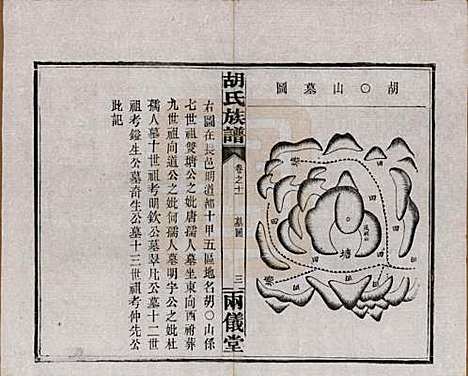 胡〇山墓圖
田
田
田
塘
胡氏族譜
卷之十
墓圖
三
兩儀堂
右圖在長邑明道都十甲五區地名胡〇山係
七世祖雙塘公之妣唐孺人墓坐東向西祔葬
九世祖向道公之妣何孺人墓明宇公之妣杜
孺人墓十世祖考明欽公墓翠片公墓十二世
祖考鎰生公墓奇生公墓十三世祖考仲先公
此記